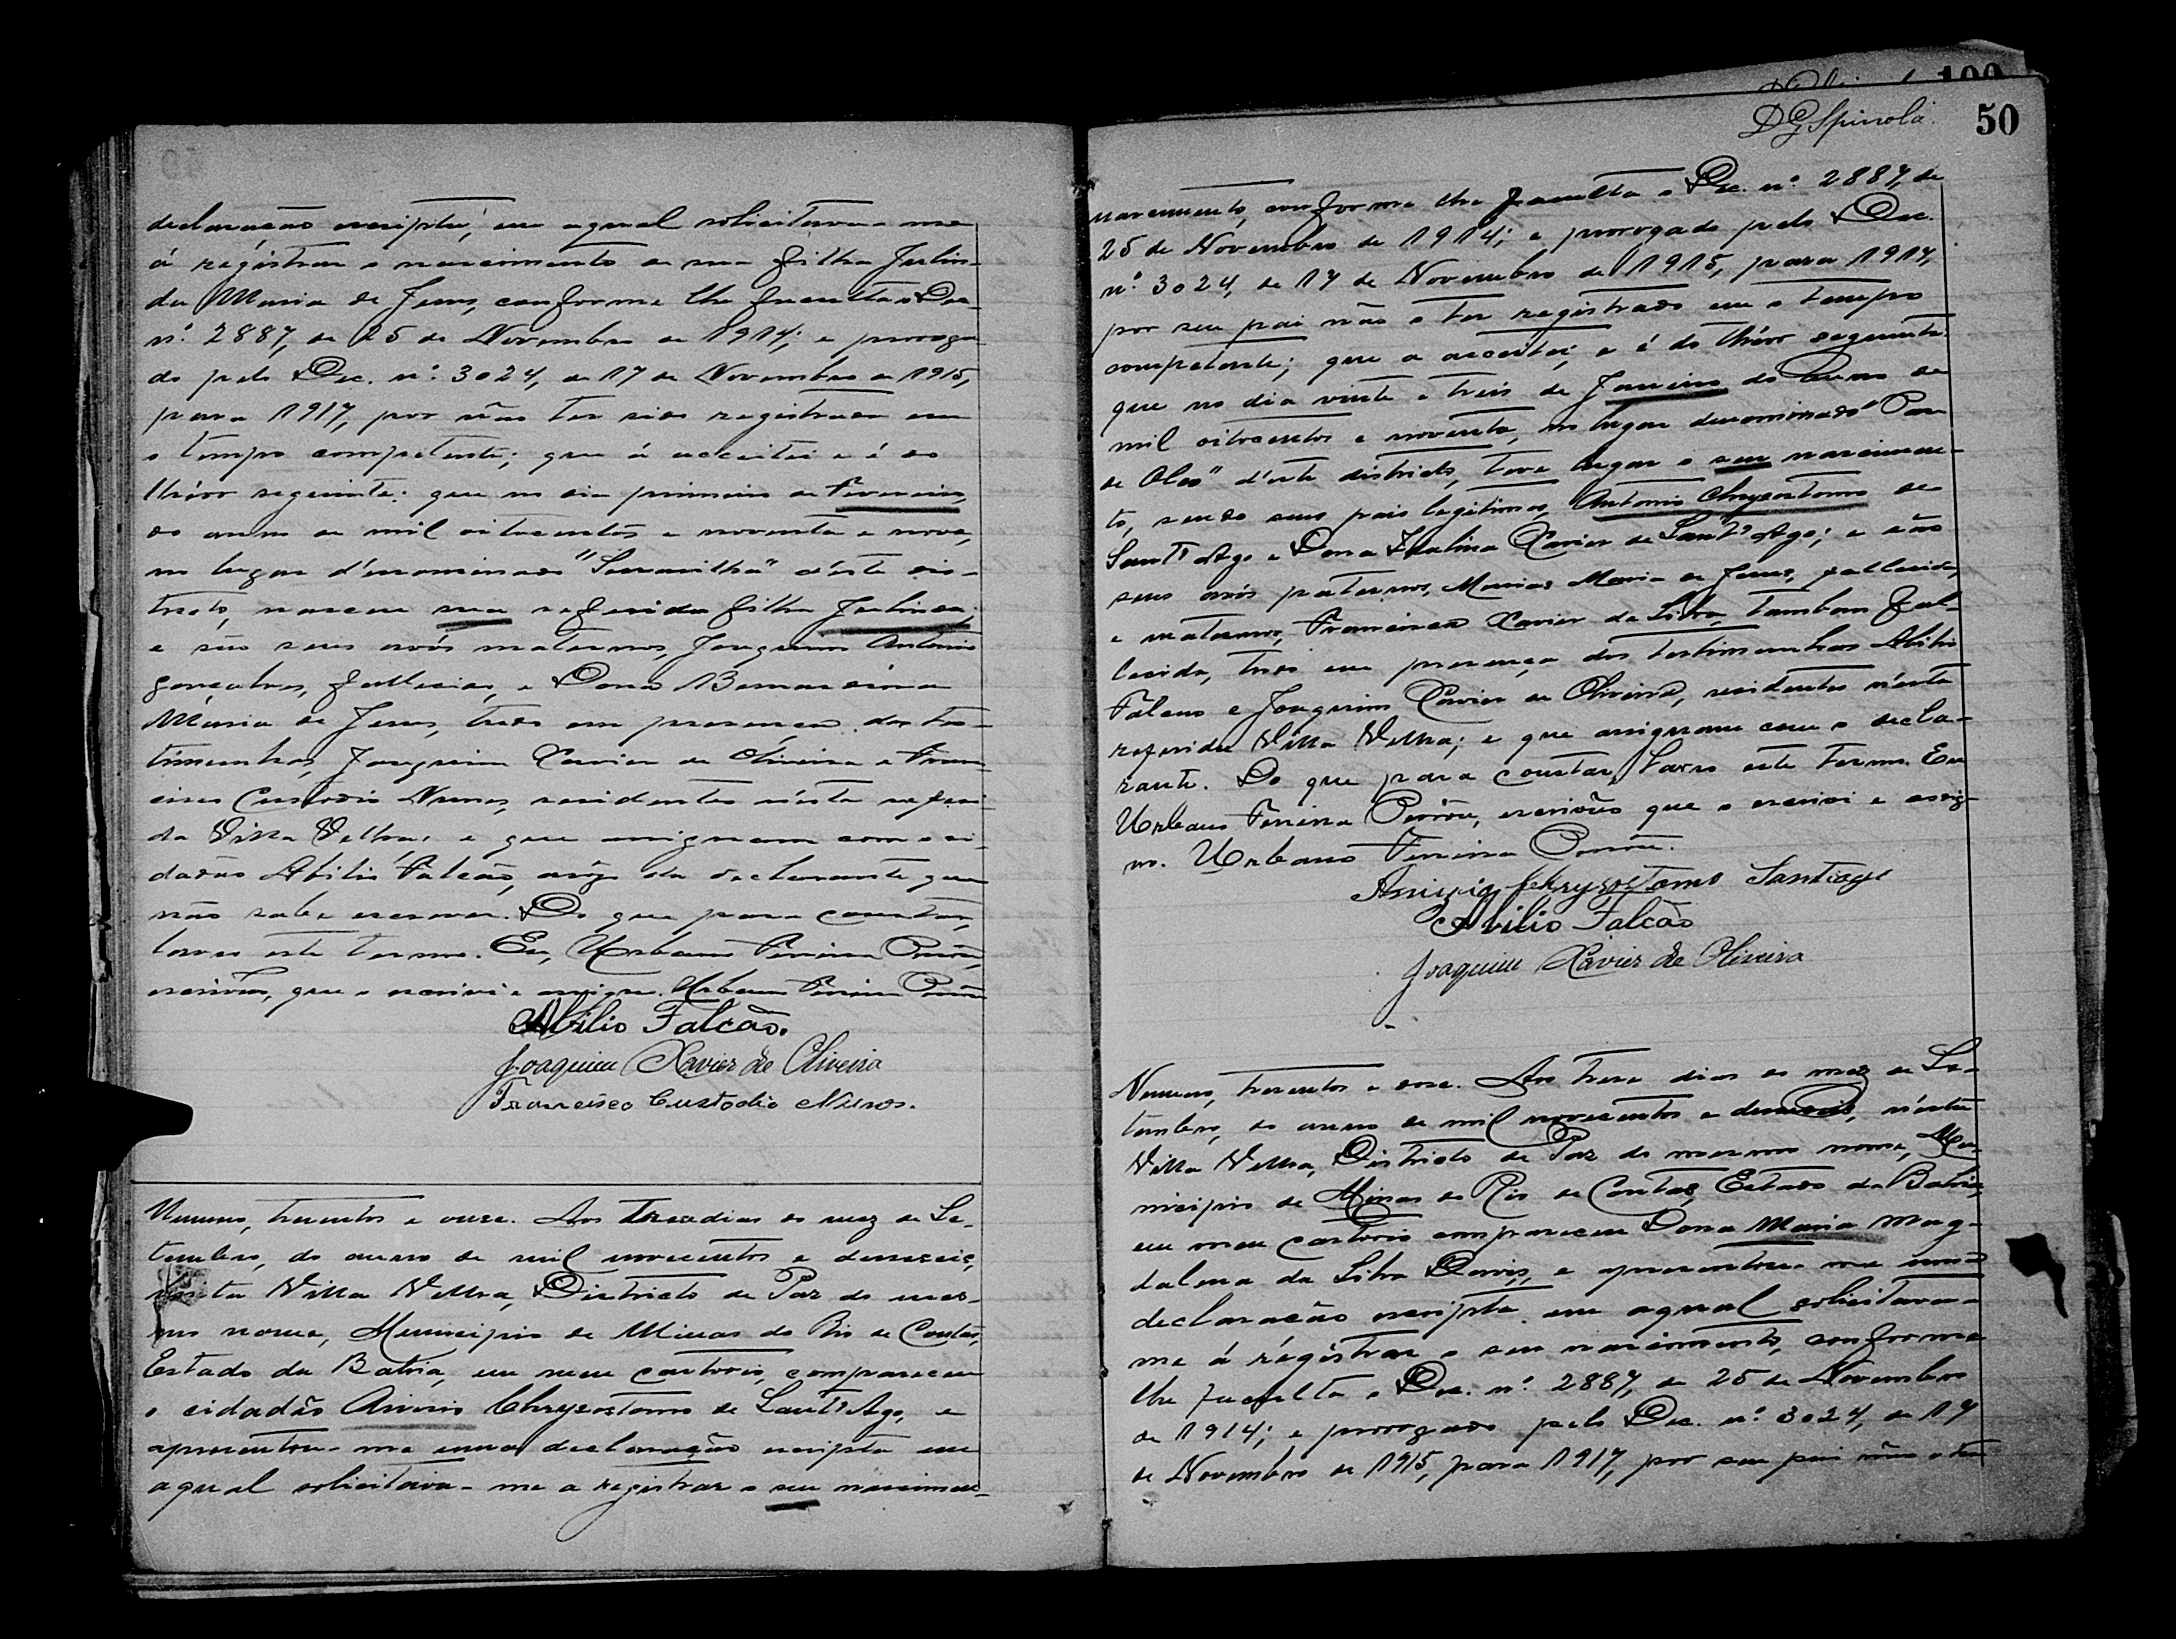 declaração escripta, em a qual solicitava-me
á registrar o nascimento de sua filha Jesuin-
da Maria de Jesus, conforme lhe faculta o Dec.
nº. 2887, de 25 de Novembro de 1914; e proroga-
do pelo Dec. nº. 3024, de 17 de Novembro de 1915,
para 1917, por não ter sido registrado em
o tempo competente; que á acceitei e é do
thiôr seguinte: que no dia primeiro de Fevereiro,
do anno de mil oitocentos e noventa e nove,
no lugar d'enominado d'este dis-
tricto, nasceu sua referida filha
e são seus avós maternos, Joaquim Antonio
Gonçalves, fallecido, e Dona Bernardina
Maria de Jesus, tudo em presença das tes-
timunhas, Joaquim Xavier de Oliveira e Fran-
cisco Custodio Nunes, residentes n'esta referi-
da Villa Velha, e que assignam com o ci-
dadão Abilio Falcão, arôgo da declarante que
não sabe escrever. Do que para constar,
lavro este termo. Eu, Urbano Ferreira
escrivão, que o escrivi e assigno. Urbano Ferreira
Abilio Falcão.
Joaquim Xavier de Oliveira
Francisco Custodio Nunes.
Numero, trezentos e onze. Aos treze dias do mez de Se-
tembro, do anno de mil novecentos e dezeseis,
nesta Villa Velha, Districto de Paz do mes-
mo nome, Municipio de Minas do Rio de Contas,
Estado da Bahia, em meu cartorio, compareceu
o cidadão Chrysostomo de Sant'Ago, e
apresentou-me uma declaração escripta em
a qual solicitava-me a registrar o seu nascimen-
D G Spinola. 50
nascimento, conforme lhe faculta o Dec. nº. 2887, de
25 de Novembro de 1914; e prorogado pelo Dec.
nº. 3024, de 17 de Novembro de 1915, para 1917,
por seu pai não o ter registrado em o tempo
competente; que a acceitei, e é do thiôr seguinte:
que no dia vinte e treis de Janeiro do anno de
mil oitocentos e noventa, no lugar denominado "Pau
de Oleo" d'este districto, teve lugar o seu nascimen-
to, sendo seus pais legitimos, Antonio Chrysostomo de
Sant'Ago e Dona Xavier de Sant'Ago; e são
seus avós paternos, Maria de Jesus, fallecida,
e maternos, Xavier da Silva, tambem fal-
lecida, tudo em presença das testimunhas Abilio
Falcão e Joaquim Xavier de Oliveira, residentes n'esta
referida Villa Velha; e que assignam com o decla-
rante. Do que para constar, lavro este termo. Eu
Urbano Ferreira escrivão que o escrivi e assig-
no. Urbano Ferreira
Chrysostomo Santiago
Abilio Falcão
Joaquim Xavier de Oliveira
Numero, trezentos e doze. Aos treze dias do mez de Se-
tembro, do anno de mil novecentos e dezeseis, n'esta
Villa Velha, Districto de Paz do mesmo nome, Mu-
nicipio de Minas do Rio de Contas, Estado da Bahia,
em meu cartorio compareceu Dona Maria Mag-
dalena da Silva e apresentou-me uma
declaração escripta, em a qual solicitava-
me á régistrar o seu nascimento, conforme
lhe faculta o Dec. nº. 2887, de 25 de Novembro
de 1914; e prorogado pelo Dec. nº. 3024, de 17
de Novembro de 1915, para 1917, por seu pai não o ter